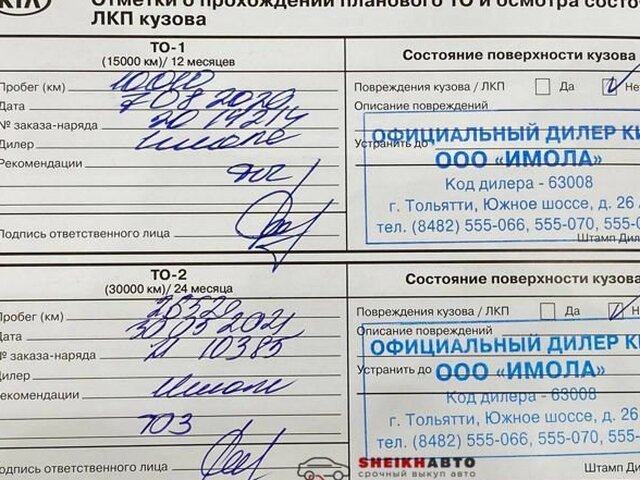 KIA Отметки о прохождении планового ТО и осмотра состо
ЛКП кузова
ТО-1
(15000 км)/ 12 месяцев
Состояние поверхности кузова
Пробег (км)
Повреждения кузова / ЛКП Да Не
Дата 7 08 2020
Описание повреждений
№ заказа-наряда 2014214
Дилер Имола
Устранить до
Рекомендации
ОФИЦИАЛЬНЫЙ ДИЛЕР КИ
ООО «ИМОЛА»
Код дилера - 63008
г. Тольятти, Южное шоссе, д. 26
тел. (8482) 555-066, 555-070, 555-0
Подпись ответственного лица
Штамп Дил
ТО-2
(30000 км)/ 24 месяца
Состояние поверхности кузова
Пробег (км) 28529
Повреждения кузова / ЛКП Да Н
Дата 30.05 2021
Описание повреждений
№ заказа-наряда 21 10385
Дилер Имола
Устранить до
Рекомендации
ТО3
ОФИЦИАЛЬНЫЙ ДИЛЕР К
ООО «ИМОЛА»
Код дилера - 63008
г. Тольятти, Южное шоссе, д. 26
тел. (8482) 555-066, 555-070, 555-
Подпись ответственного лица
Штамп Ди
SHEIKHАВТО
срочный выкуп авто